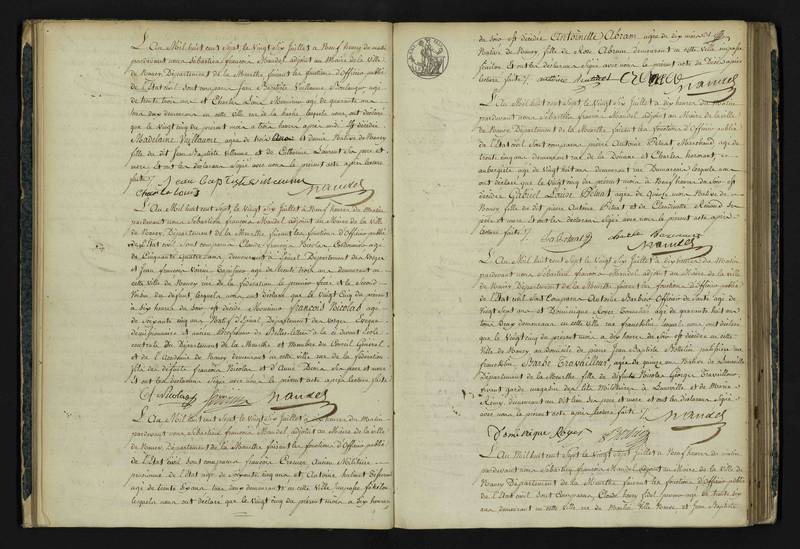 L'An Mil huit cent Sept, le Vingt Six Juillet à Neuf heures du matin
pardevant nous Sébastien françois Mandel, adjoint au Maire de la Ville
de Nancy, Département de la Meurthe faisant les fonctions d'Officier public
de l'Etat civil sont comparus Jean Baptiste Vuillaume Boulanger, agé
de trente trois ans et Charles Louis Menuisier agé de quarante un
tous deux demeurant en cette Ville rue de la hache, lequels nous ont déclaré
que le Vingt cinq du présent mois à trois heures après midi est décédée
Madelaine Vuillaume agée de trois ans et demie Native de Nancy
fille du dit Jean Baptiste Vuillaume et de Catherine Laurent Ses père et
mère et ont les déclarans Signé avec nous le présent acte après lecture
faite
Jean Baptiste Vuillaume
Charle Louis Mandel
L'An Mil huit cent Sept, le Vingt Six Juillet à Neuf heures du Matin
pardevant nous Sébastien françois Mandel adjoint au Maire de la Ville
de Nancy, Département de la Meurthe faisant les fonctions d'Officier public
de l'Etat civil, Sont comparus Claude françois Nicolas agé
de Cinquante quatre ans demeurant à Epinal Département des Vosges
et Jean françois agé de trente trois ans demeurant en
cette Ville de Nancy rue de la fédération le premier frère et le Second
du défunt lesquels nous ont déclaré que le Vingt Cinq du présent
à Six heures du Soir est décédé Monsieur françois Nicolas agé
de Soixante cinq ans Natif d'Epinal Département des Vosges
et ancien Professeur de Belles-lettres à la ci devant Ecole
centrale du Département de la Meurthe et Membre du Conseil Général
et de l'Académie de Nancy demeurant en cette ville rue de la fédération
fils des défunts françois Nicolas et d'Anne Denis Ses père et mère
et ont les déclarans Signé avec nous le présent acte après lecture faite
Nicolas Mandel
L'An Mil huit cent Sept, le Vingt Six Juillet à heures du Matin
pardevant nous Sébastien françois Mandel adjoint au Maire de la ville
de Nancy, Département de la Meurthe faisant les fonctions d'Officier public
de l'Etat civil Sont comparus françois Ancien Militaire
pensionné de l'Etat agé de Soixante cinq ans et Antoine
agé de trente Six ans tous deux demeurant en cette Ville
lesquels nous ont déclaré que le Vingt cinq du présent mois à dix heures
du Soir est décédée Antoinette Abram agée de dix mois
Native de Nancy, fille de Rose Abram demeurant en cette Ville
et ont les déclarans Signé avec nous le présent acte après
lecture faite
Mandel
L'An Mil huit cent Sept, le Vingt Six Juillet à dix heures du Matin
pardevant nous Sébastien françois Mandel adjoint au Maire de la ville
de Nancy Département de la Meurthe faisant les fonctions d'Officier public
de l'Etat civil, Sont comparus pierre Antoine Pitoat Marchand agé de
trente cinq ans demeurant rue de la Douane et Charles
aubergiste agé de Vingt huit ans demeurant rue lesquels nous
ont déclaré que le Vingt Cinq du présent mois à Neuf heures du Soir est
décédée Gabriel Louise Pitoat agée de mois Native de
Nancy fille du dit pierre Antoine Pitoat et de Claudinette Ses
père et mère et ont les déclarans Signé avec nous le présent acte après
lecture faite
Mandel
L'An Mil huit cent Sept, le Vingt Six Juillet à dix heures du Matin
pardevant nous Sébastien françois Mandel, adjoint au Maire de la ville
de Nancy, Département de la Meurthe faisant les fonctions d'Officier public
de l'Etat civil sont Comparus Antoine Barbier Officier de Santé agé de
Vingt Sept ans et Dominique Royer agé de quarante huit ans
tous deux demeurant en cette ville rue franklin, lesquels nous ont déclaré
que le Vingt cinq du présent mois à dix heures du Soir est décédée en cette
Ville de Nancy au domicile de pierre Jean Baptiste
franklin, Barbe Travailleur, agée de quinze ans Native de Lunéville
Département de la Meurthe fille de défunt Nicolas Georges Travailleur
vivant garde magasin des lits Militaires à Lunéville et de Marie
Remy, demeurant au dit lieu Ses père et mère et ont les déclarans Signé
avec nous le présent acte après lecture faite Mandel
Dominique Royer
L'An Mil huit cent Sept, le Vingt Six Juillet à Neuf heures du matin
pardevant nous Sébastien françois Mandel adjoint au Maire de la Ville
de Nancy Département de la Meurthe faisant les fonctions d'Officier public
de l'Etat civil, sont Comparus Claude agé de trente Six
ans demeurant en cette ville rue du Moulin et Jean Baptiste